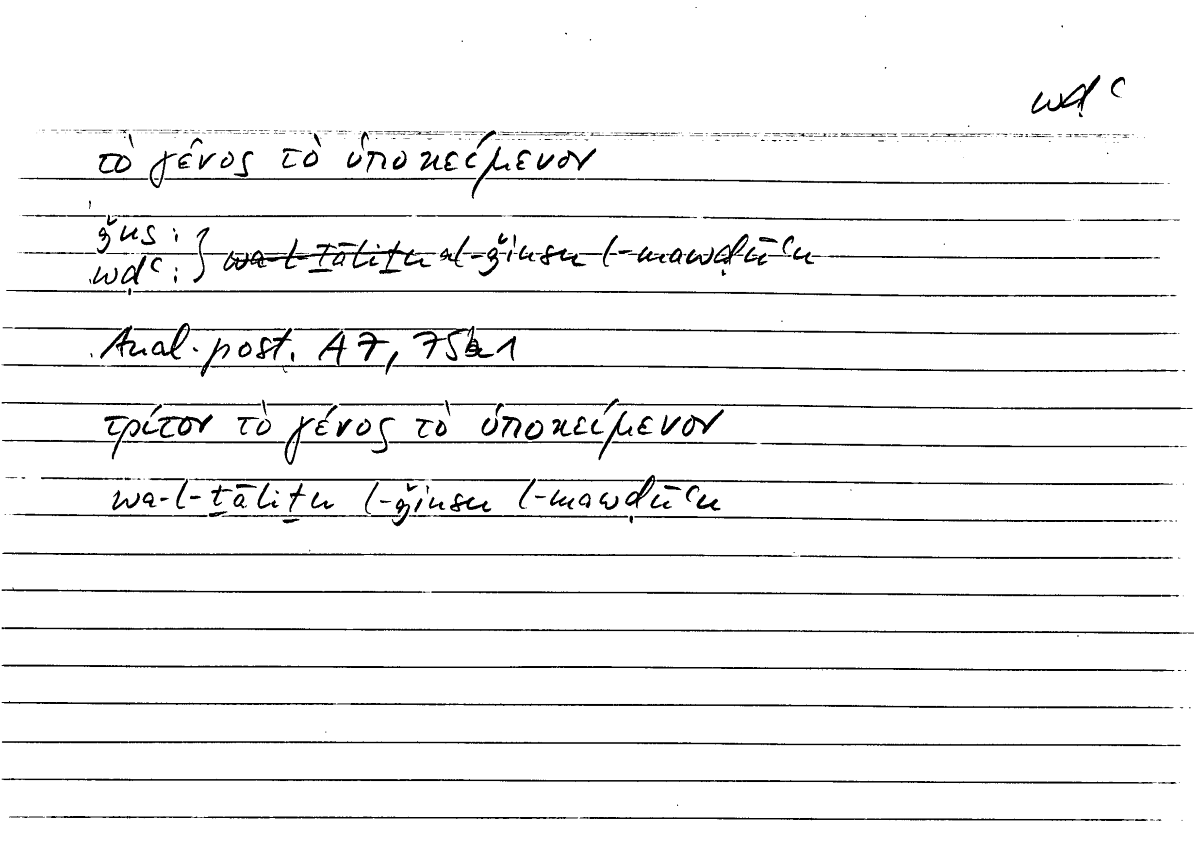 wḍʿ
τὸ γένος τὸ ὑποκείμενον
ǧns :
wḍʿ : } wa-l-ṯāliṯu al-ǧinsu l-mawḍūʿu
Anal. post. A 7, 75a1
τρίτον τὸ γένος τὸ ὑποκείμενον
wa-l-ṯāliṯu l-ǧinsu l-mawḍūʿu